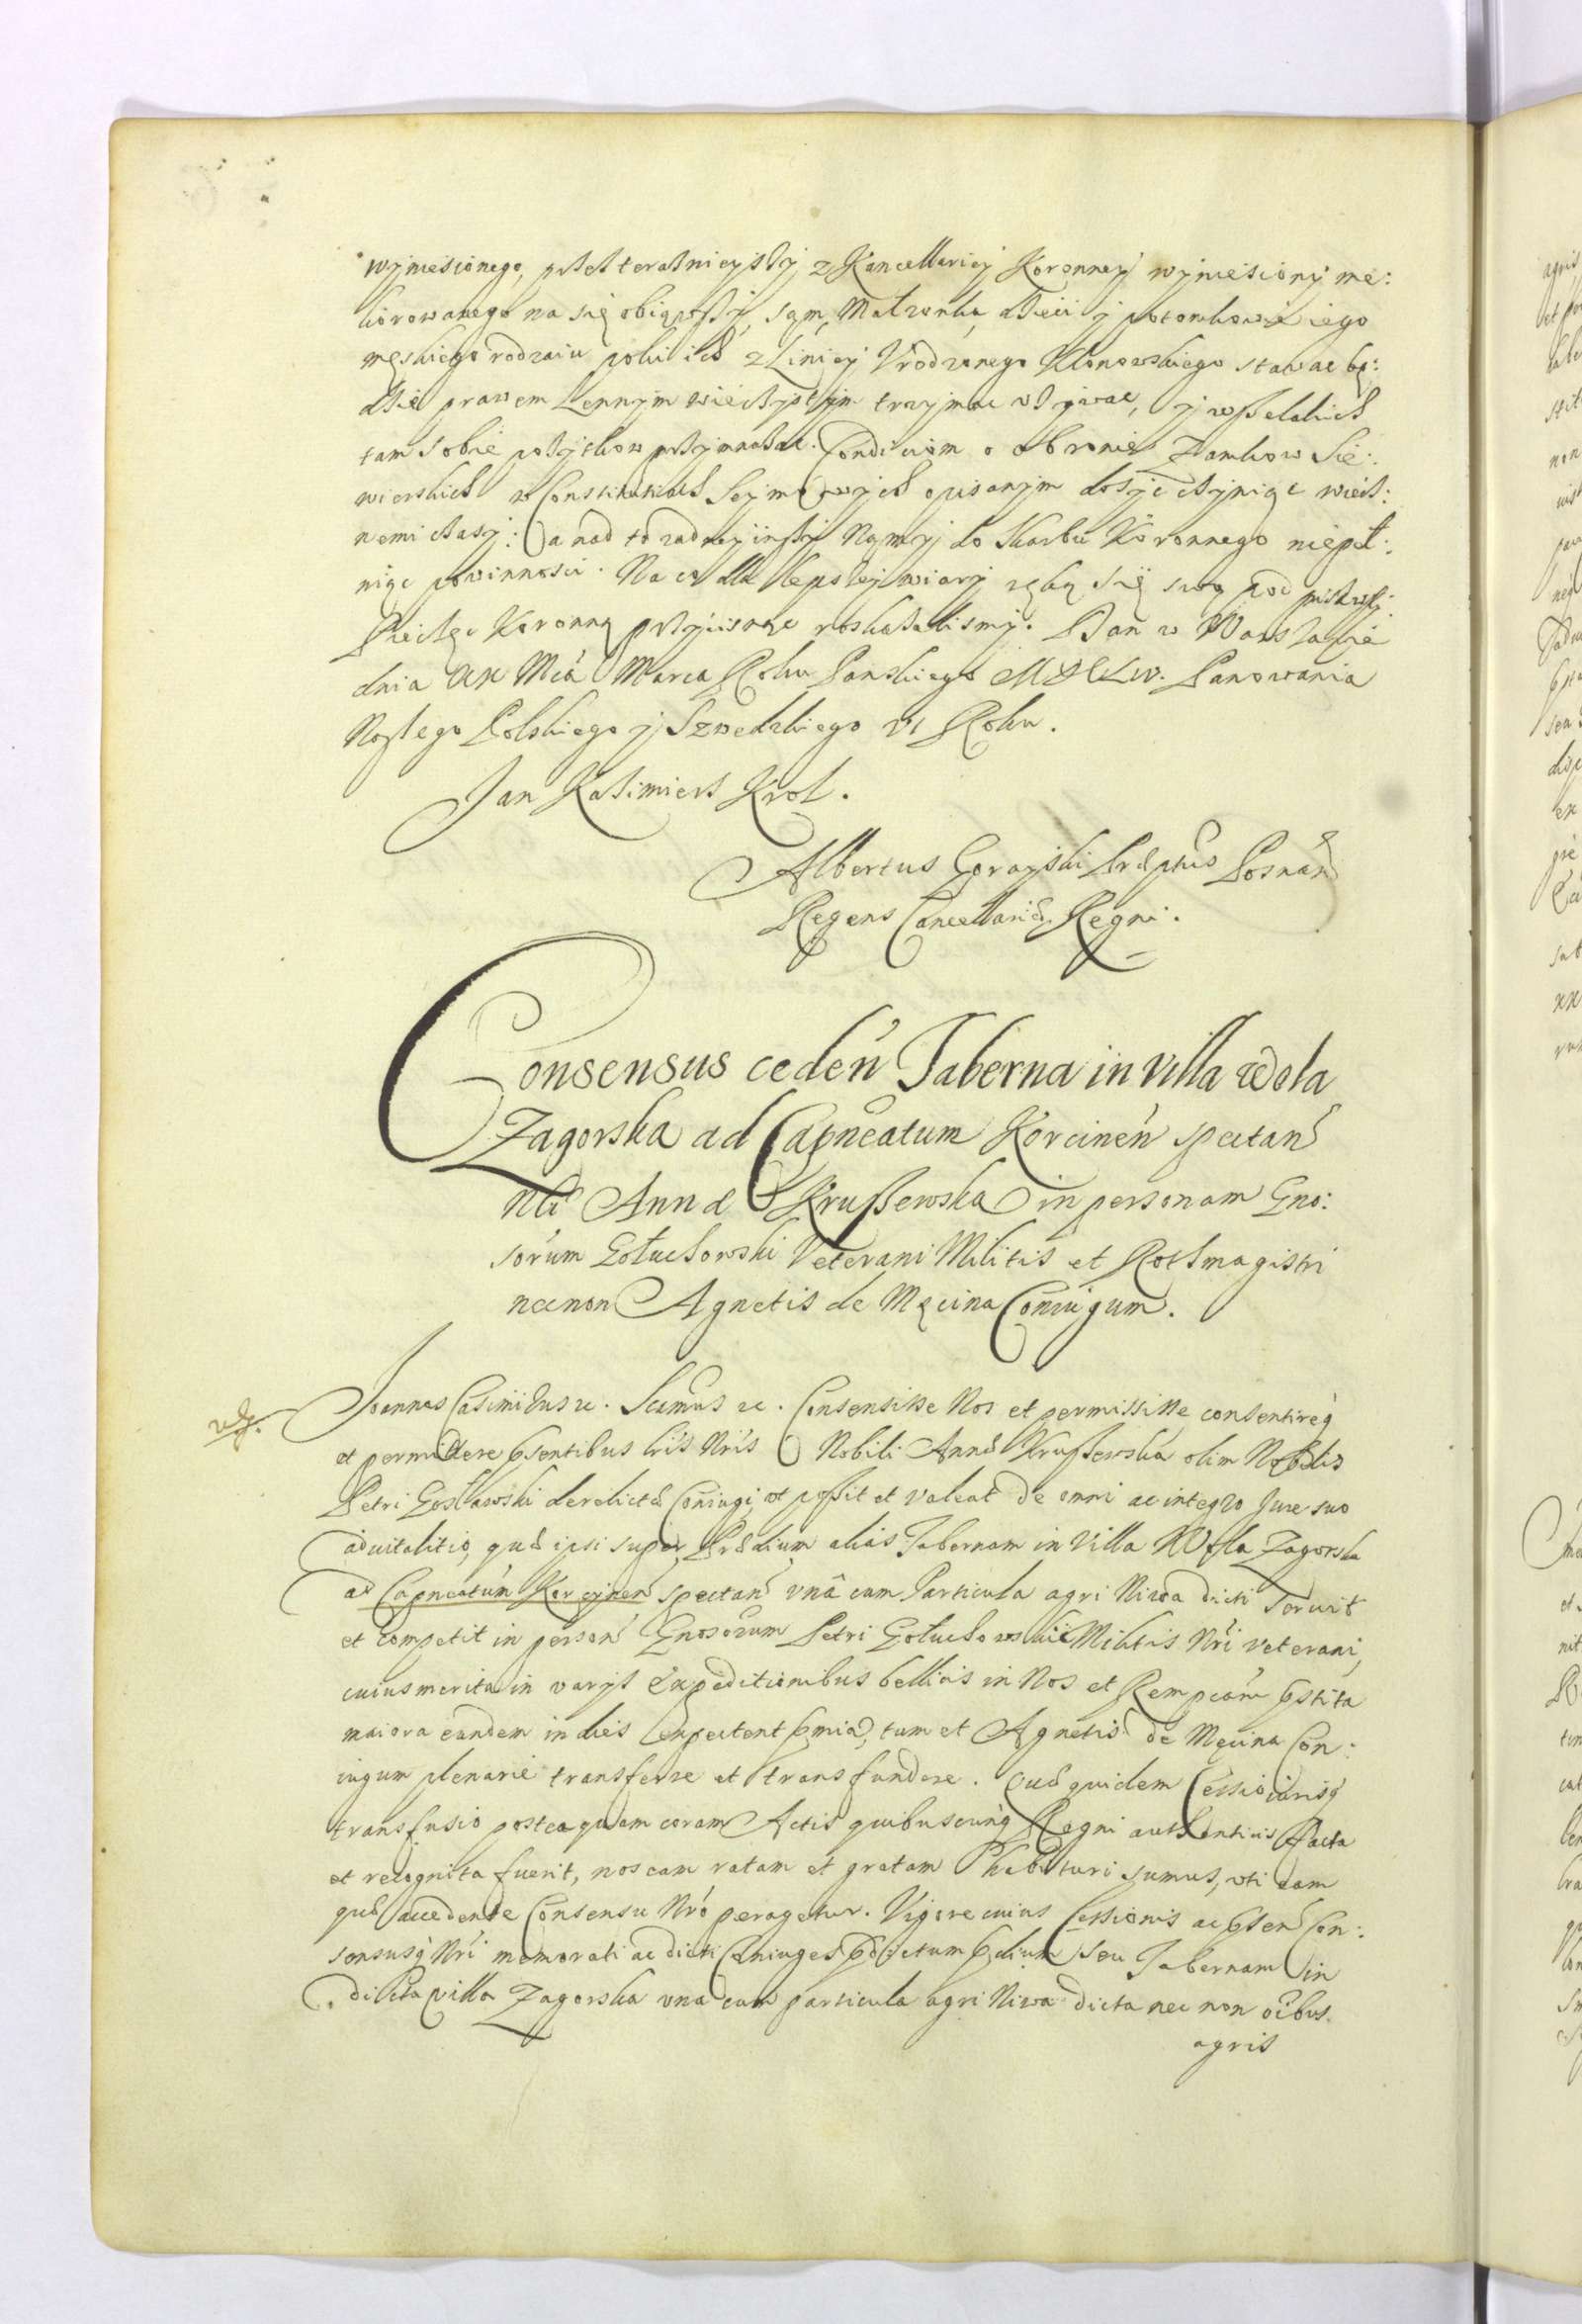 wyniesionego, przez teraznieyszy z Kancellariey Koronney wyniesiony me:
liorowanego na się obiąwszy, sąm, Małzonka, dzieci y potomkowie iego
męskiego rodzaiu poki ich z Liniey Vrodzonego Klonowskiego stawac bę:
dzie prawem Lennym wieczystym trzymac vzywac, y wszelakich
tam sobie pozytkow przymnazac. Condiciom o obronie Zamkow Sie:
wierskich w Constitutiach Seymowych opisanym dosyc czyniąc wiecz:
nemi czasy: a nad to zadney inszy Nam y do Skarbu Koronnego niepeł:
niąc powinnosci. Na co dla lepszey wiary ręką się swą pod pisawszy
Pieczęc Koronną przycisnąc roskazalismy. Dan w Warszawie
dnia XX Mca Marca Roku Panskiego MDCLIV. Panowania
Naszego Polskiego y Szwedzkiego VI Roku.
Jan Kazimierz Krol.
Albertus Gorayski Præptus Posnan
Regens Cancellariæ Regni.
Consensus ceden Taberna in Villa Wola
Zagorska ad Capneatum Korcinen spectan
Nli Annæ Kruszewska in personam Gno:
sorum Gołuchowski Veterani Militis et Rothmagistri
necnon Agnetis de Męcina Coniugum.
Joannes Casimirus &c. Scimus &c. Consensisse Nos et permississe consentireq
et permittere Psentibus Lris Nris Nobili Annæ Kruszewska olim Nobilis
Petri Gosławski derelictæ Coniugi, vt possit et valeat de omni ac integro Jure suo
aduitalitio, quod ipsi super Prædium alias Tabernam in Villa Wola Zagorska
ad Capneatum Korcynen spectan vnâ cum Particula agri Niwa dicti seruit
et competit in person Gnosorum Petri Gołuchowskii Militis Nri veterani,
cuius merita in varys expeditionibus bellicis in Nos et Rempcam Pstita
maiora eundem in dies expectent Pmia, tum et Agnetis de Męcina Con:
iugum plenarie transferre et transfundere. Quæ quidem Cessio iurisq
transfusio posteaquam coram Actis quibuscunq Regni authenticis facta
et recognita fuerit, nos eam ratam et gratam habituri sumus, vti eam
quæ accedente Consensu Nro peragetur. Vigore cuius Cessionis ac Psen Con:
sensusq Nri memorati ac dicti Coniuges Pdictum Pdium seu Tabernam in
dicta villa Zagorska vna cum particula agri Niwa dicta nec non oibus
agris